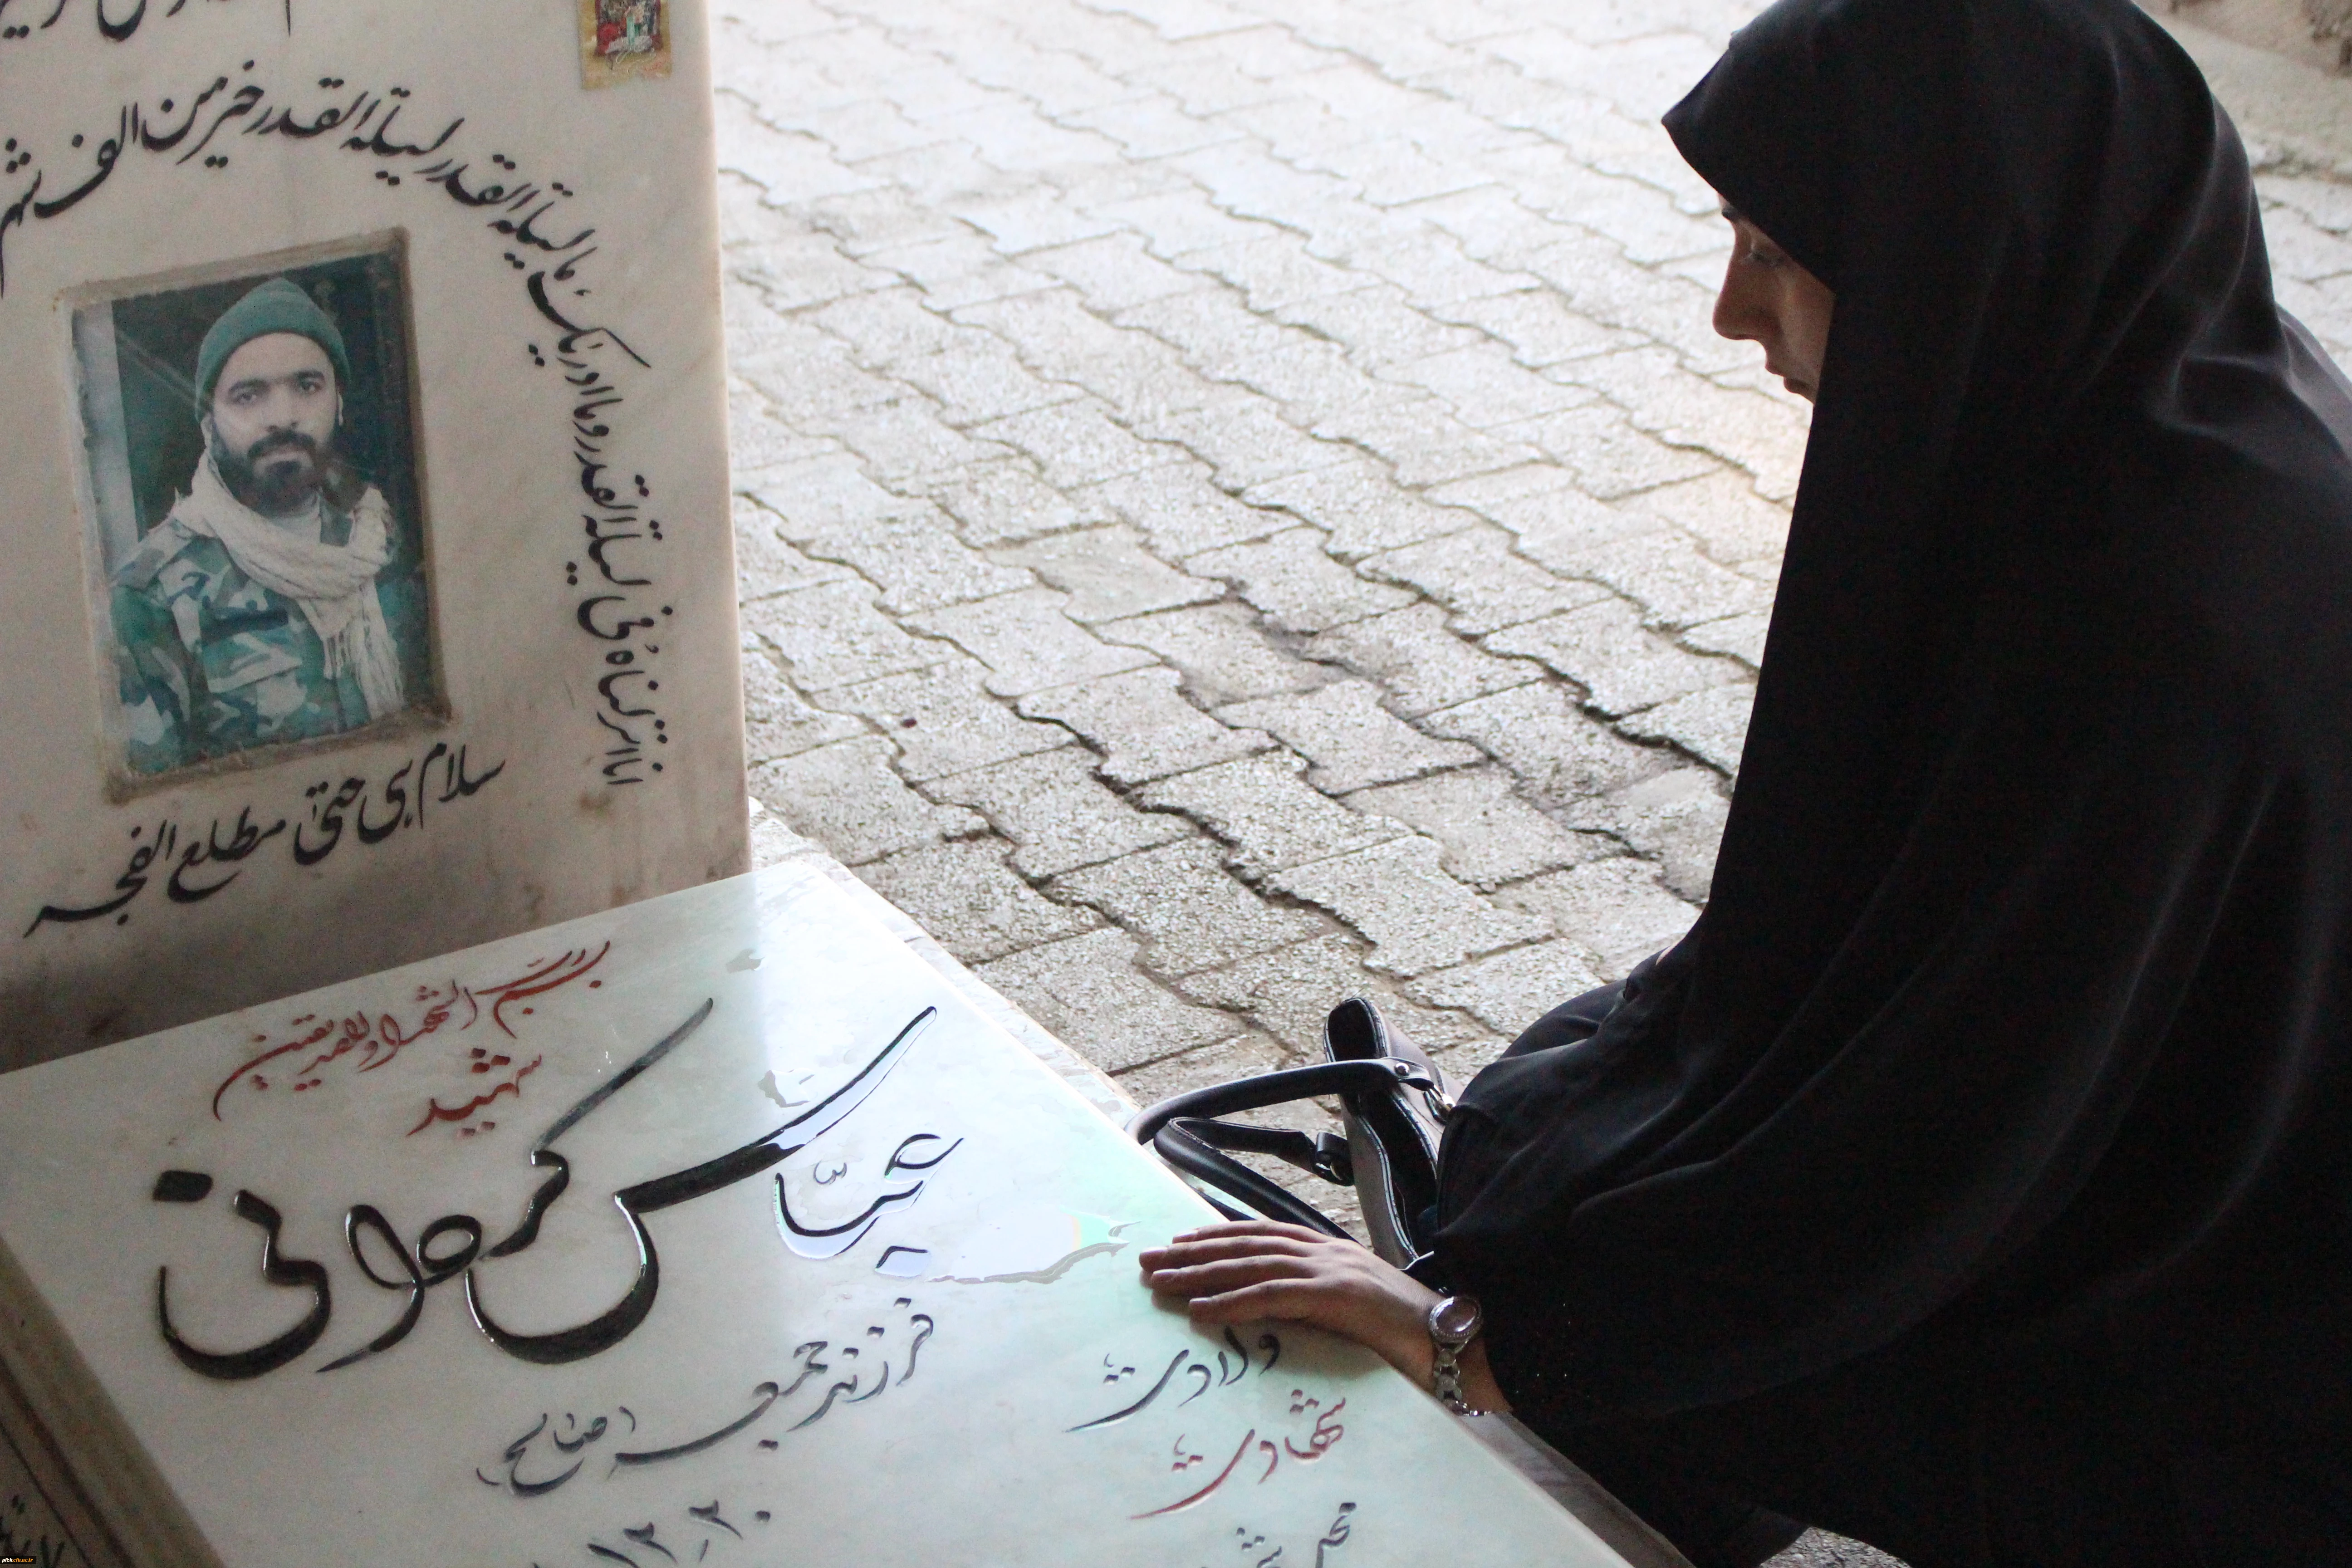 انا انزلناه فی لیلة القدر و ما ادریک ما لیلة القدر لیلة القدر خیر من الف شهر
سلام هی حتی مطلع الفجر
بسم رب الشهداء والصدیقین
شهید
عباس کردانی
فرزند جمعه (صالح)
ولادت
شهادت
محل